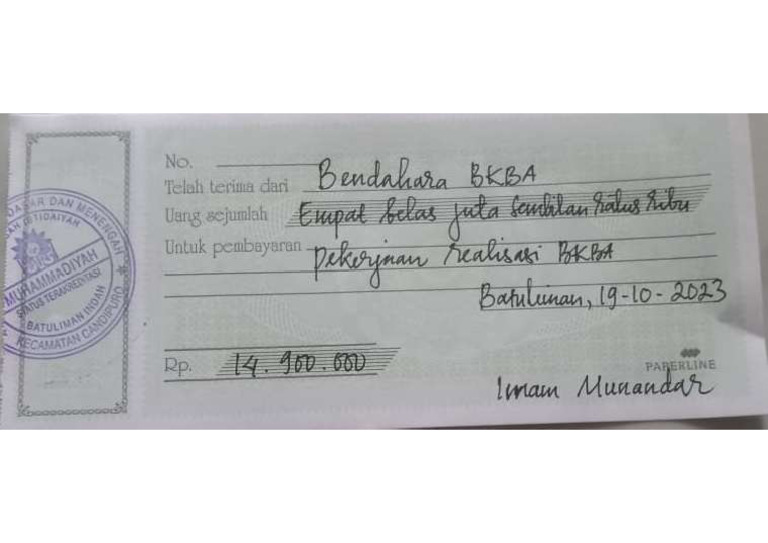 No.
Telah terima dari Bendahara BKBA
Uang sejumlah Empat belas juta sembilan ratus ribu
Untuk pembayaran pekerjaan realisasi BKBA
Batuliman, 19-10-2023
Rp. 14.900.000
PAPERLINE
Imam Munandar
DASAR DAN MENENGAH
IBTIDAIYAH
MUHAMMADIYAH
STATUS TERAKREDITASI
BATULIMAN INDAH
KECAMATAN CANDIPURO